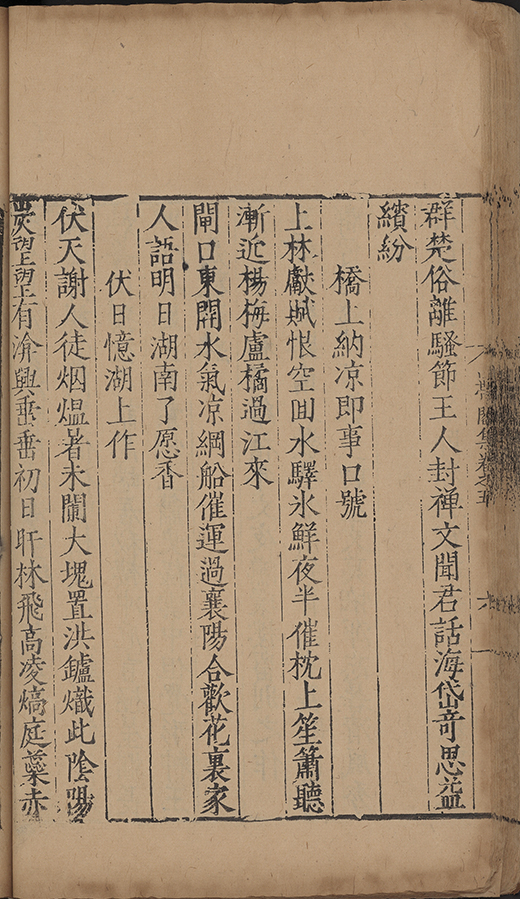 群楚俗離騷節王人封禅文聞君話海岱竒思益
繽紛
橋上納凉即事口號
上林獻賦恨空囬水驛氷鮮夜半催枕上笙簫聽
漸近楊梅盧橘過江來
閘口東開水氣凉綱船催運過襄陽合歡花裏家
人語明日湖南了愿香
伏日憶湖上作
伏天謝人徒烟煴暑未闌大塊置洪鑪熾此陰陽
炭望望有渰興垂垂初日旰林飛高凌熇庭蘂赤
集卷之五
六